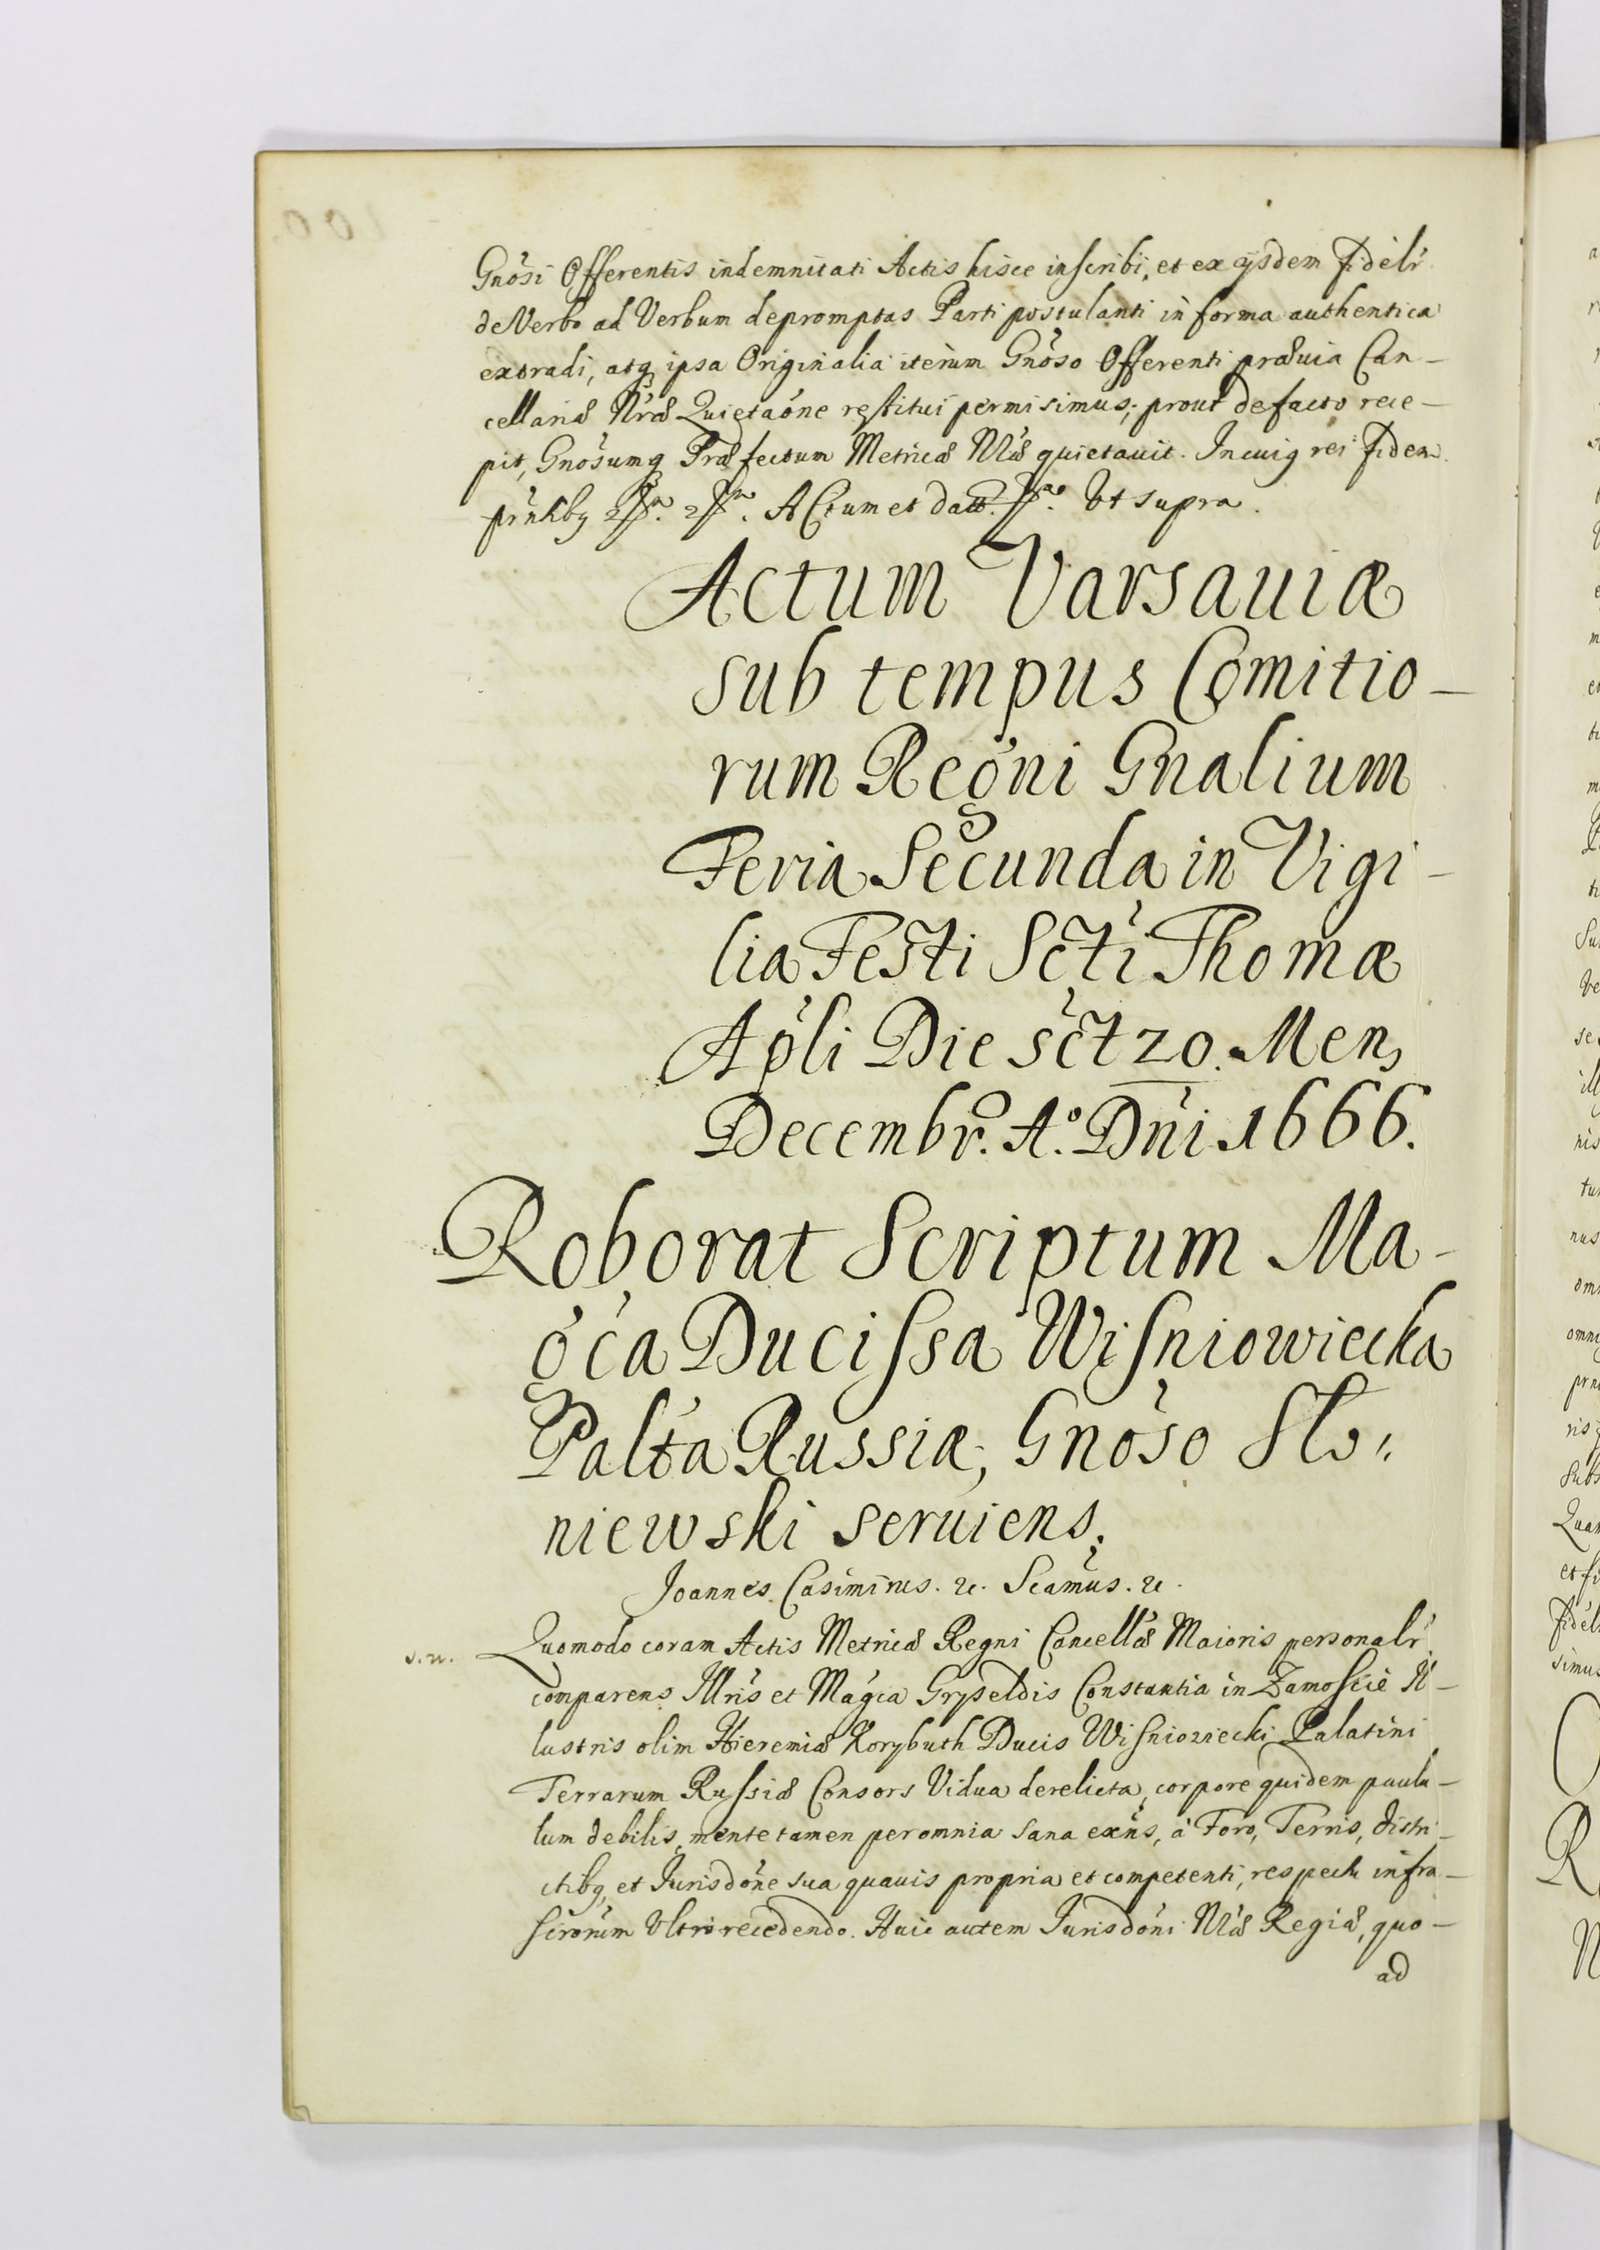 Gnosi Offerentis indemnitati Actis hisce inscribi, et ex ijsdem fidelr
de Verbo ad Verbum depromptas Parti postulanti in forma authentica
extradi, atq ipsa Originalia iterum Gnoso Offerenti præuia Can-
cellariæ Nræ Quietaóne restitui permisimus; prout defacto rece-
pit, Gnosumq Præfectum Metricæ Nræ quietauit. In cuiq rei fidem
Actum et dat. Ut supra.
Actum Varsauiæ
sub tempus Comitio-
rum Regni Gnalium
Feria Secunda in Vigi-
lia Festi Scti Thomæ
Apli Die sct 20. Mens
Decembr. A.° Dni 1666.
Roborat Scriptum Ma-
gca Ducissa Wisniowiecka
Palta Russiæ, Gnoso Slo,,
niewski seruiens.
Joannes Casimirus. &. Scamus. &.
Quomodo coram Actis Metricæ Regni Cancellæ Maioris personalr
comparens Illris et Magca Gryseldis Constantia in Zamoscie Il-
lustris olim Hieremiæ Korybuth Ducis Wisniowiecki Palatini
Terrarum Russiæ Consors Vidua derelicta, corpore quidem paulu-
lum debilis, mente tamen per omnia sana exns, à Foro, Terris, distri-
ctibq, et Jurisdóne sua quauis propria et competenti, respectu infra-
scrorum Ultro recedendo. Huic autem Jurisdóni Nræ Regiæ, quo-
ad